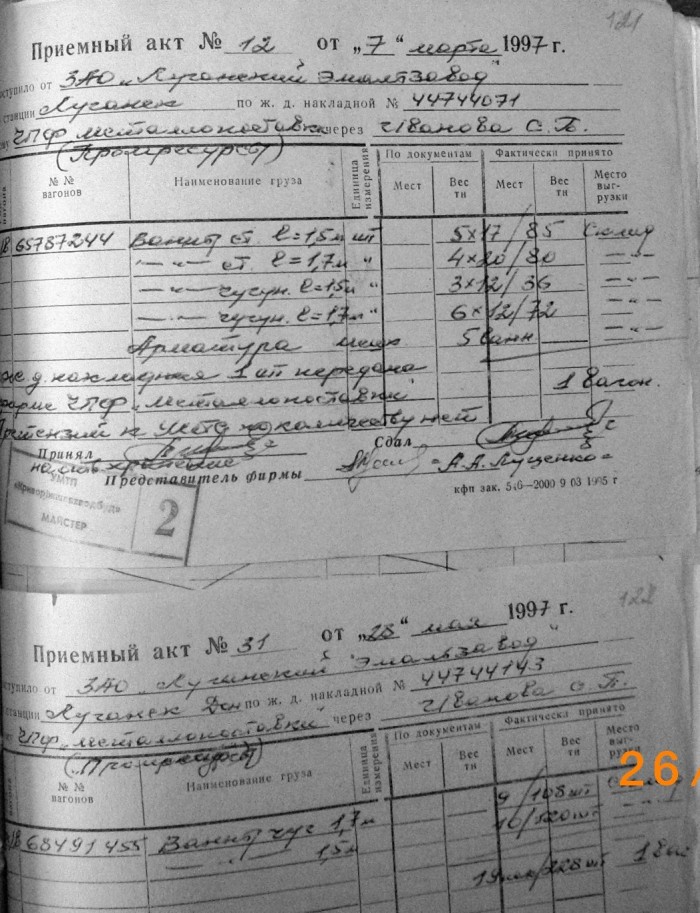 121
Приемный акт № 12 от „7“ марта 1997 г.
оступило от ЗАО „Луганский Эмальзавод“
станции Луганск по ж. д. накладной № 44744071
ЧПФ Металлопоставка через Иванова С. П.
(Промресурсы)
№ № вагонов Наименование груза Единица измерения По документам Фактически принято Место выгрузки
Мест Вес тн Мест Вес тн
65787244 Ванны ст. l=1,5м шт 5х17/85 Склад
—„— ст. l=1,7м " 4х20/80 —„—
—„— чугун. l=1,5м " 3х12/36 —„—
—„— чугун. l=1,7м " 6х12/72 —„—
Арматура 5 ванн —„—
ж. д. накладная 1 шт передана
фирме ЧПФ „Металлопоставки“ 1 вагон.
Претензий к УМТП по количеству нет
Принял Сдал
на отв. хранение
Представитель фирмы А.А. Луценко
кфп зак. 546—2000 9 03 1995 г
УМТП
МАЙСТЕР
2
122
Приемный акт № 31 от „28“ мая 1997 г.
оступило от ЗАО „Луганский Эмальзавод“
станции Луганск Дон по ж. д. накладной № 44744143
ЧПФ „Металлопоставки“ через Иванова С. П.
(„Промресурсы)
№ № вагонов Наименование груза Единица измерения По документам Фактически принято Место выгрузки
Мест Вес тн Мест Вес тн
26/
9/108шт
68491455 Ванны чуг 1,7м 10/120шт
—„— 1,5м
228шт